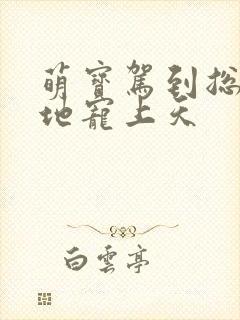 萌寶駕到總
地寵上天
白雲亭